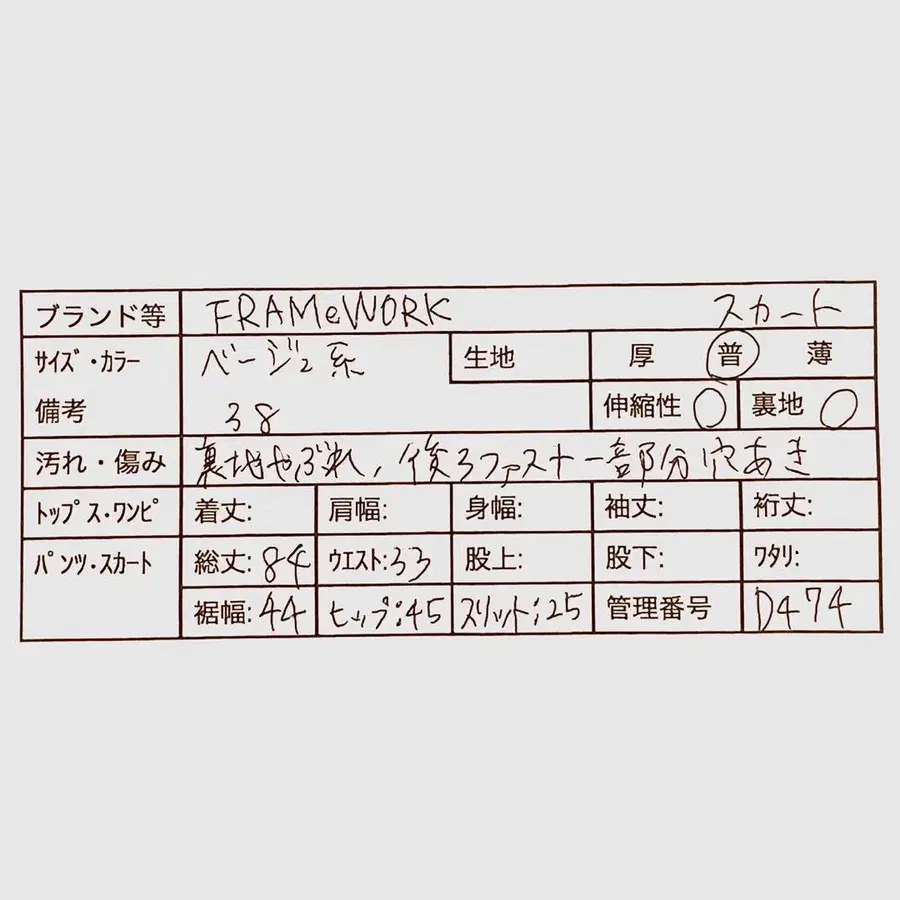 ブランド等 FRAMeWORK スカート
サイズ・カラー ベージュ系 生地 厚 普 薄
備考 38 伸縮性 〇 裏地 〇
汚れ・傷み 裏地やぶれ、後ろファスナー部分穴あき
トップス・ワンピ 着丈: 肩幅: 身幅: 袖丈: 裄丈:
パンツ・スカート 総丈:84 ウエスト:33 股上: 股下: ワタリ:
裾幅:44 ヒップ:45 スリット:25 管理番号 D474